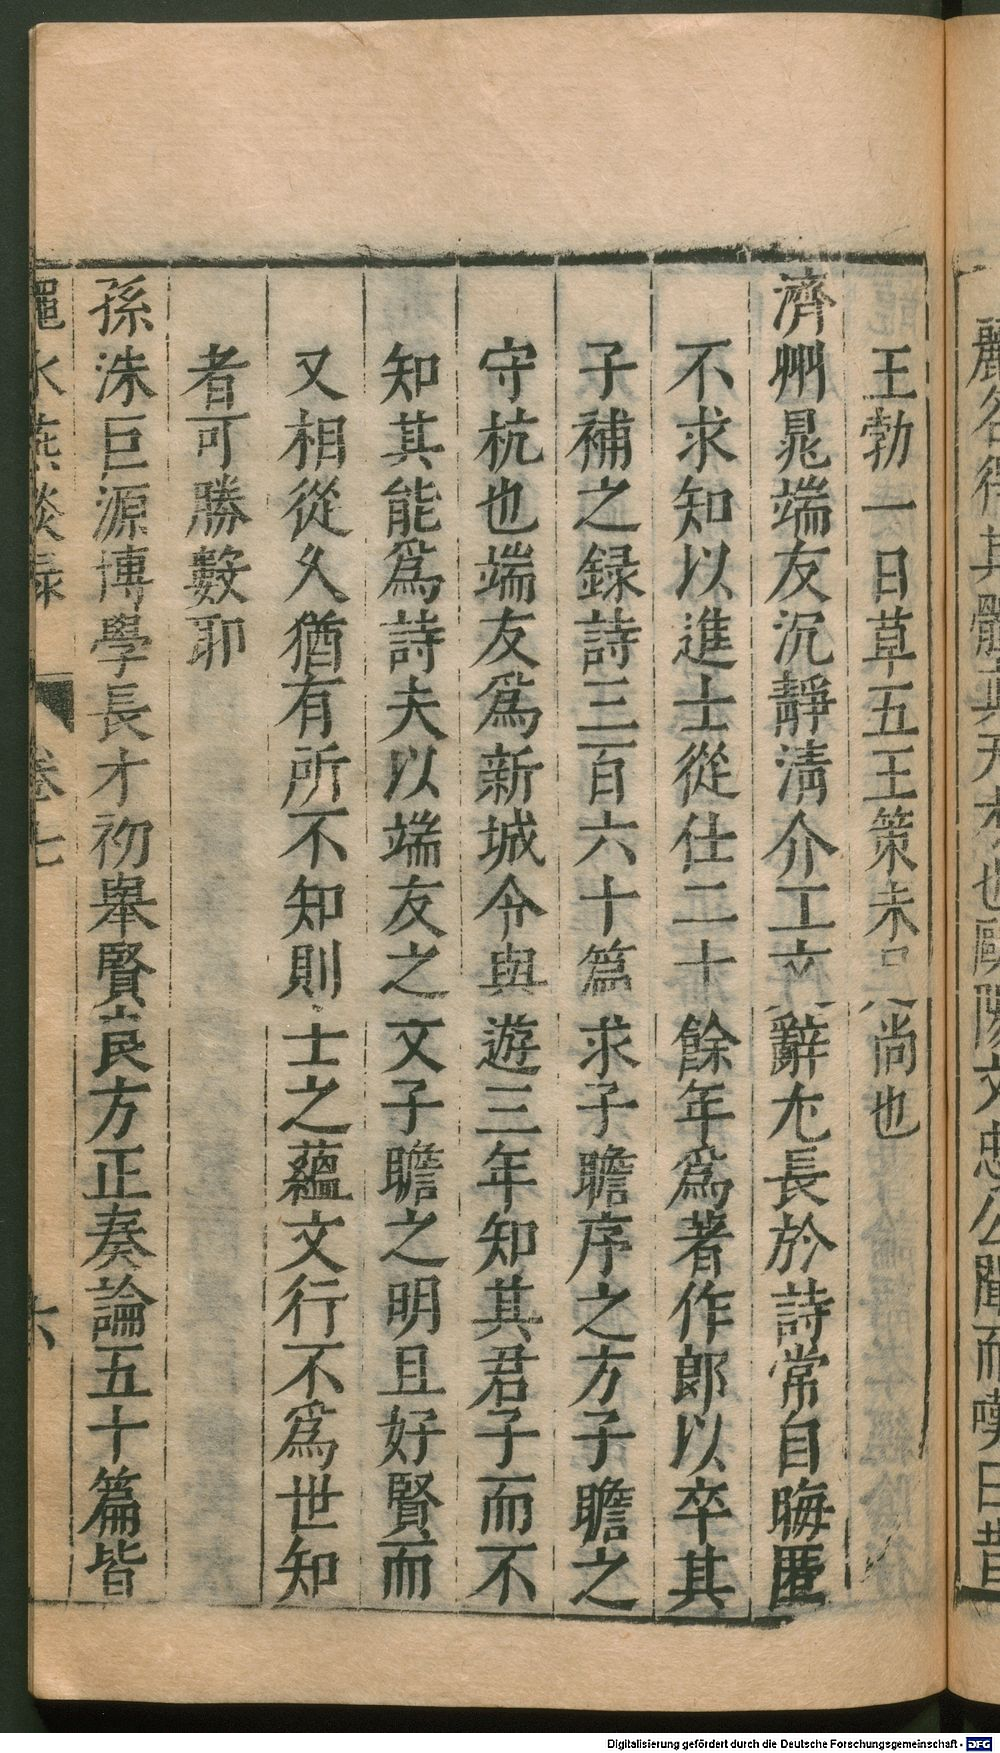 麗名得其體真天才也歐陽文忠公聞而嘆曰昔
王勃一日草五王策未足尚也
濟州晁端友沉靜清介工文辭尤長於詩常自晦匿
不求知以進士從仕二十餘年爲著作郎以卒其
子補之録詩三百六十篇求子瞻序之方子瞻之
守杭也端友爲新城令與遊三年知其君子而不
知其能爲詩夫以端友之文子瞻之明且好賢而
又相從久猶有所不知則士之蘊文行不爲世知
者可勝數耶
孫洙巨源博學長才初舉賢良方正奏論五十篇皆
澠水燕談録 卷七 六
Digitalisierung gefördert durch die Deutsche Forschungsgemeinschaft - DFG